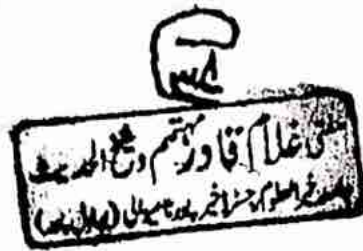 مفتی غلام قادر مہتمم و شیخ الحدیث
خیر العلوم خیرپور ٹامیوالی (بہاول پور)